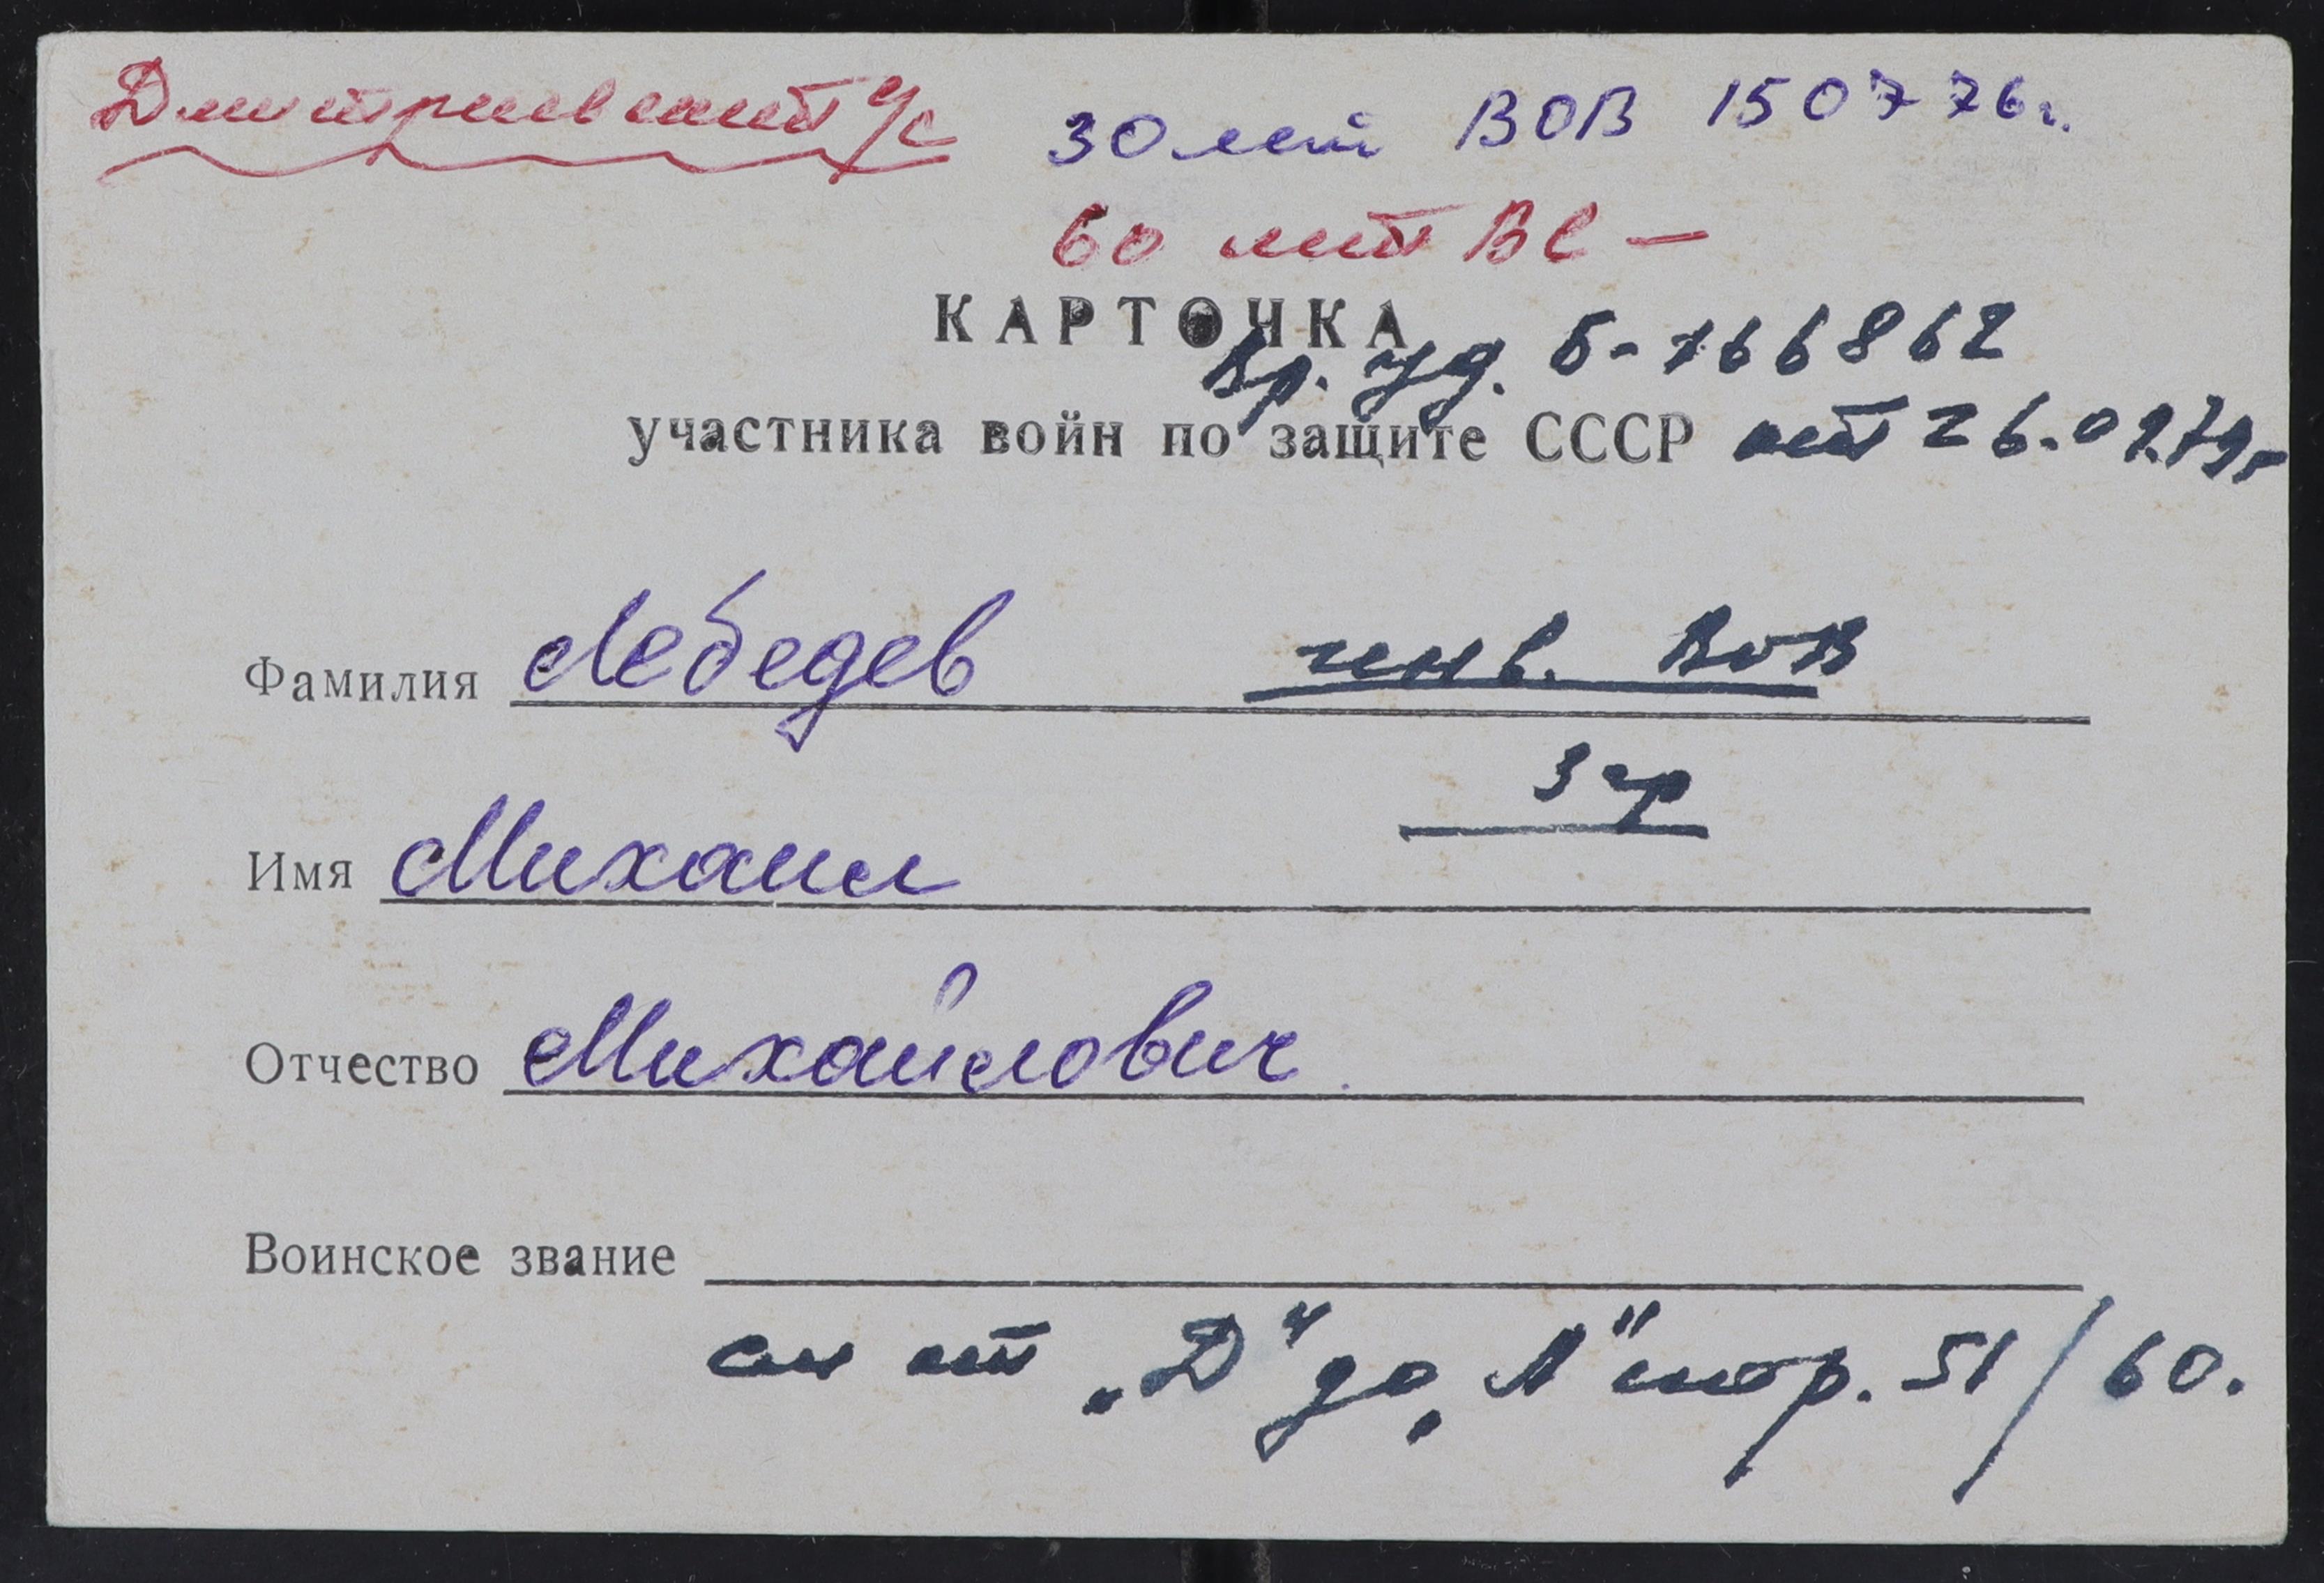 Дмитриевский с/с
30 лет ВОВ 150776г.
60 лет ВС —
КАРТОЧКА
Вр. уд. Б-766862
участника войн по защите СССР от 26.09.79г
Фамилия Лебедев инв. ВОВ
3 гр
Имя Михаил
Отчество Михайлович
Воинское звание
сп от „Д" до „Л" стр. 51/60.